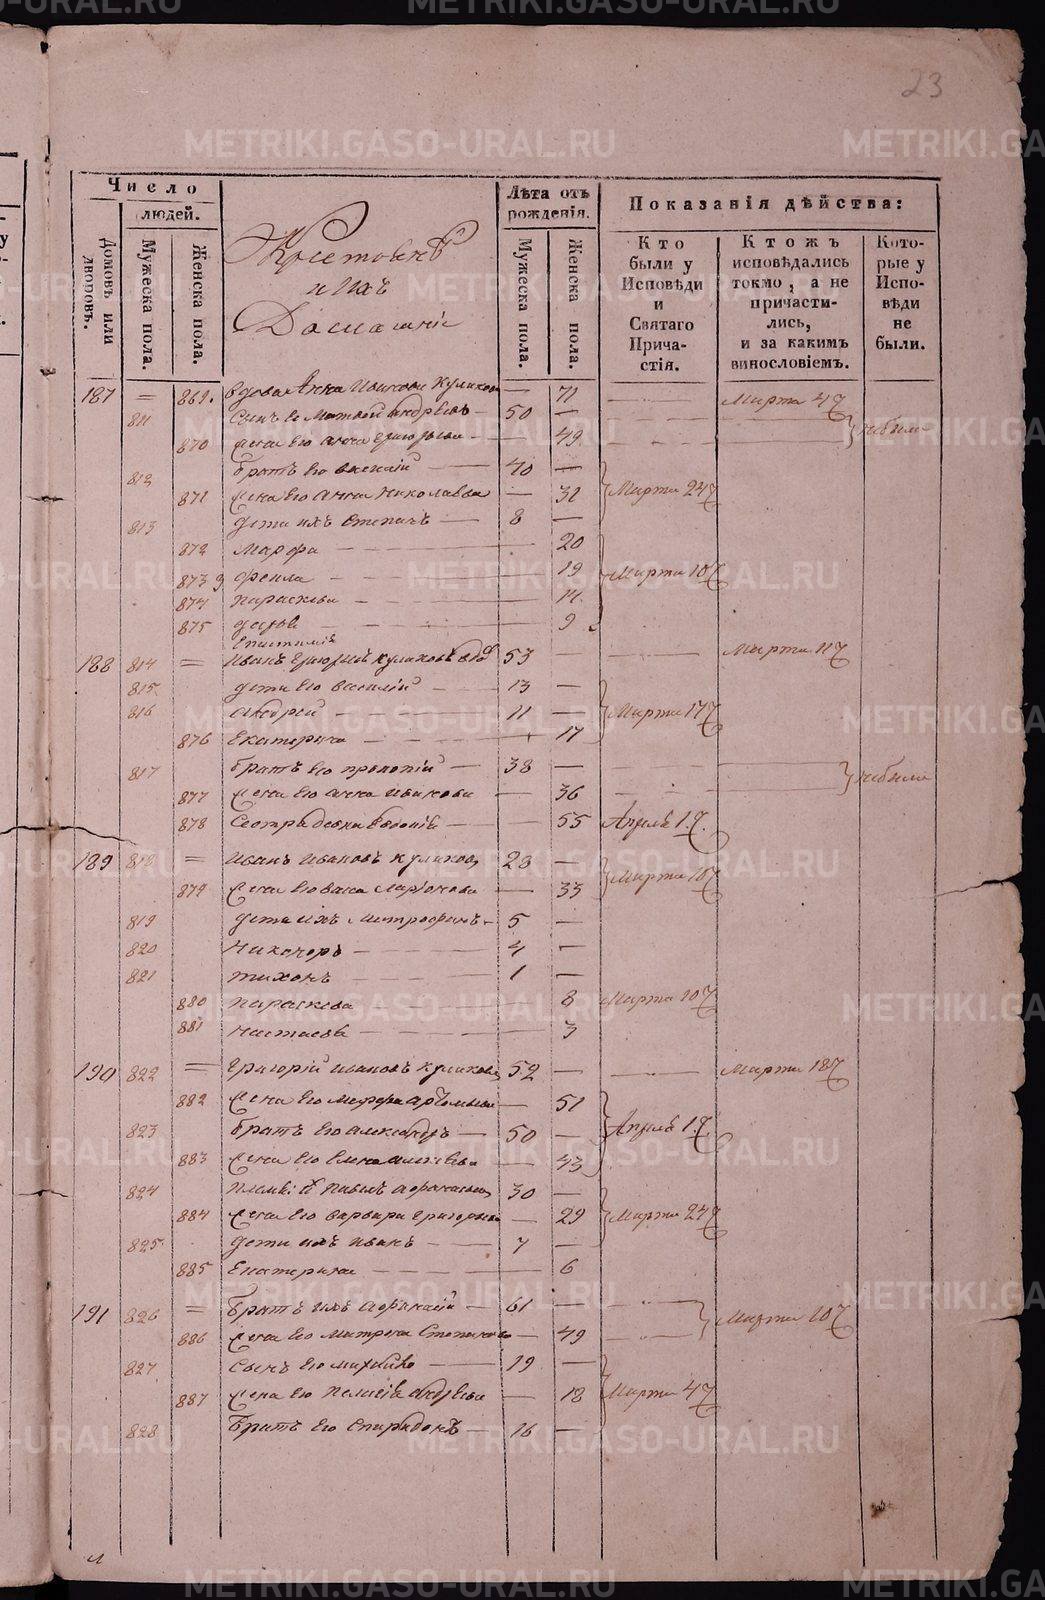 23
Число
людей.
Домовъ или дворовъ.
Мужеска пола.
Женска пола.
Крестьянъ
и ихъ
Домашнiе
Лѣта отъ рожденія.
Мужеска пола.
Женска пола.
Показанія дѣйства:
Кто были у Исповѣди и Святаго Причастія.
Ктожъ исповѣдались токмо, а не причастились, и за какимъ винословіемъ.
Которые у Исповѣди не были.
187 = 869. вдова Анна Иванова Куликова — 71 Марта 4
811 сынъ ее Матвей Андреевъ — 50 —
870 жена его Анна Григорьева — 49 не были
812 братъ его Василій — 40 —
871 жена его Анна Николаева — 32 Марта 24
813 дети ихъ Степанъ — 8 —
872 Марфа — 20
873 Фекла — 19 Марта 10
874 Параскева —
875 Дарья — 9
188 814 = Иванъ Григорьевъ Куликовъ вдовъ 53 Марта 11
815 дети его Василій — 13 —
816 Андрей — 11 — Марта 17
876 Екатерина — 17
817 братъ его Прокопій — 38 —
877 жена его Анна Иванова — 36 не были
878 Сестра девка Евдокія — 55 Апреля 1
189 818 = Иванъ Ивановъ Куликовъ 28 —
879 жена его Ларіонова — 33 Марта
819 дети ихъ Митрофанъ — 5 —
820 Никоноръ — 4 —
821 Тихонъ — 1 —
880 Параскева — 8 Марта 10
881 Настасья — 3
190 822 = Григорій Ивановъ Куликовъ 52 — Марта 18
882 жена его Марфа Артемьева — 51
823 братъ его Александръ — 50 — Апреля 1
883 жена его Елена Алексеева — 43
824 Павелъ Афанасьевъ 30 —
884 жена его Варвара Григорьева — 29 Марта 24
825 дети ихъ Иванъ — 7 —
885 Екатерина — 6
191 826 = братъ ихъ Афанасій — 61 —
886 жена его Матрена Степанова — 49 Марта 10
827 сынъ его Михайло — 19 —
887 жена его Пелагія Андреева — 18 Марта 4
828 братъ его Спиридонъ — 16 —
METRIKI.GASO-URAL.RU